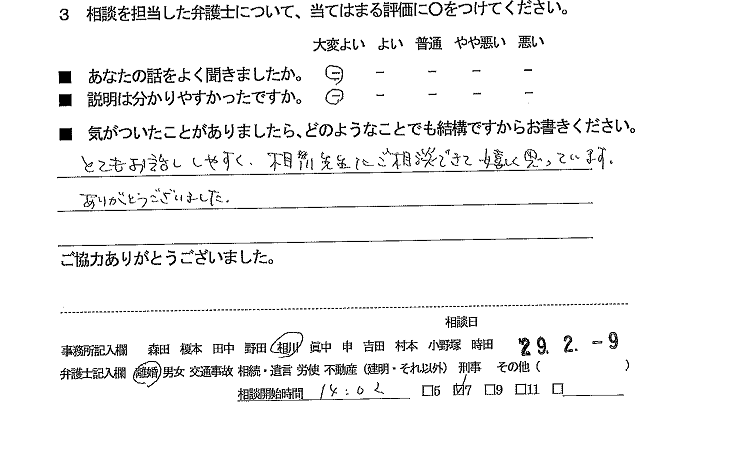 3 相談を担当した弁護士について、当てはまる評価に○をつけてください。
大変よい よい 普通 やや悪い 悪い
■ あなたの話をよく聞きましたか。 － － － － －
■ 説明は分かりやすかったですか。 － － － － －
■ 気がついたことがありましたら、どのようなことでも結構ですからお書きください。
とてもお話ししやすく、相川先生にご相談できて嬉しく思っています。
ありがとうございました。
ご協力ありがとうございました。
相談日
事務所記入欄 森田 榎本 田中 野田 相川 眞中 申 吉田 村本 小野塚 時田 29. 2. -9
弁護士記入欄 離婚 男女 交通事故 相続・遺言 労使 不動産（建明・それ以外） 刑事 その他（ ）
相談開始時間 14:02 □5 ☑7 □9 □11 □